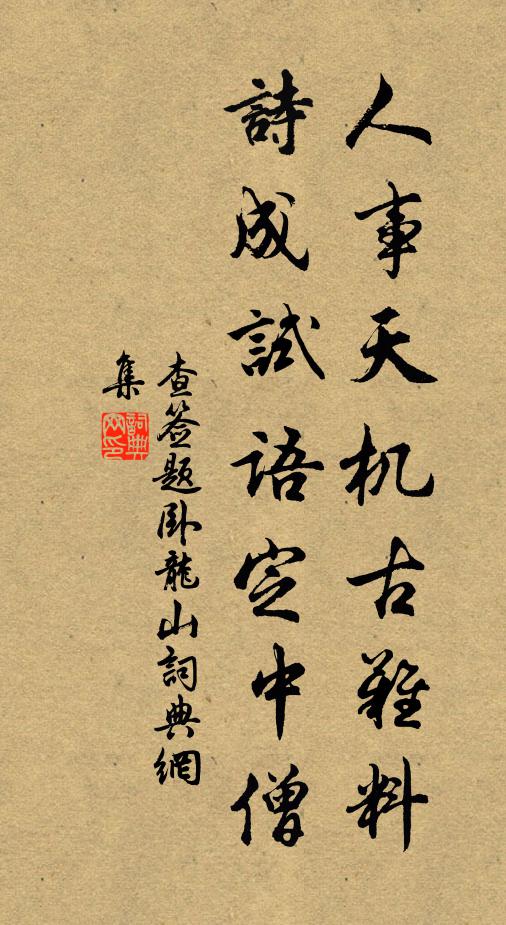 人事天机古難料
詩成試語定中僧
查签题卧龍山詞典網
集
詞典网印